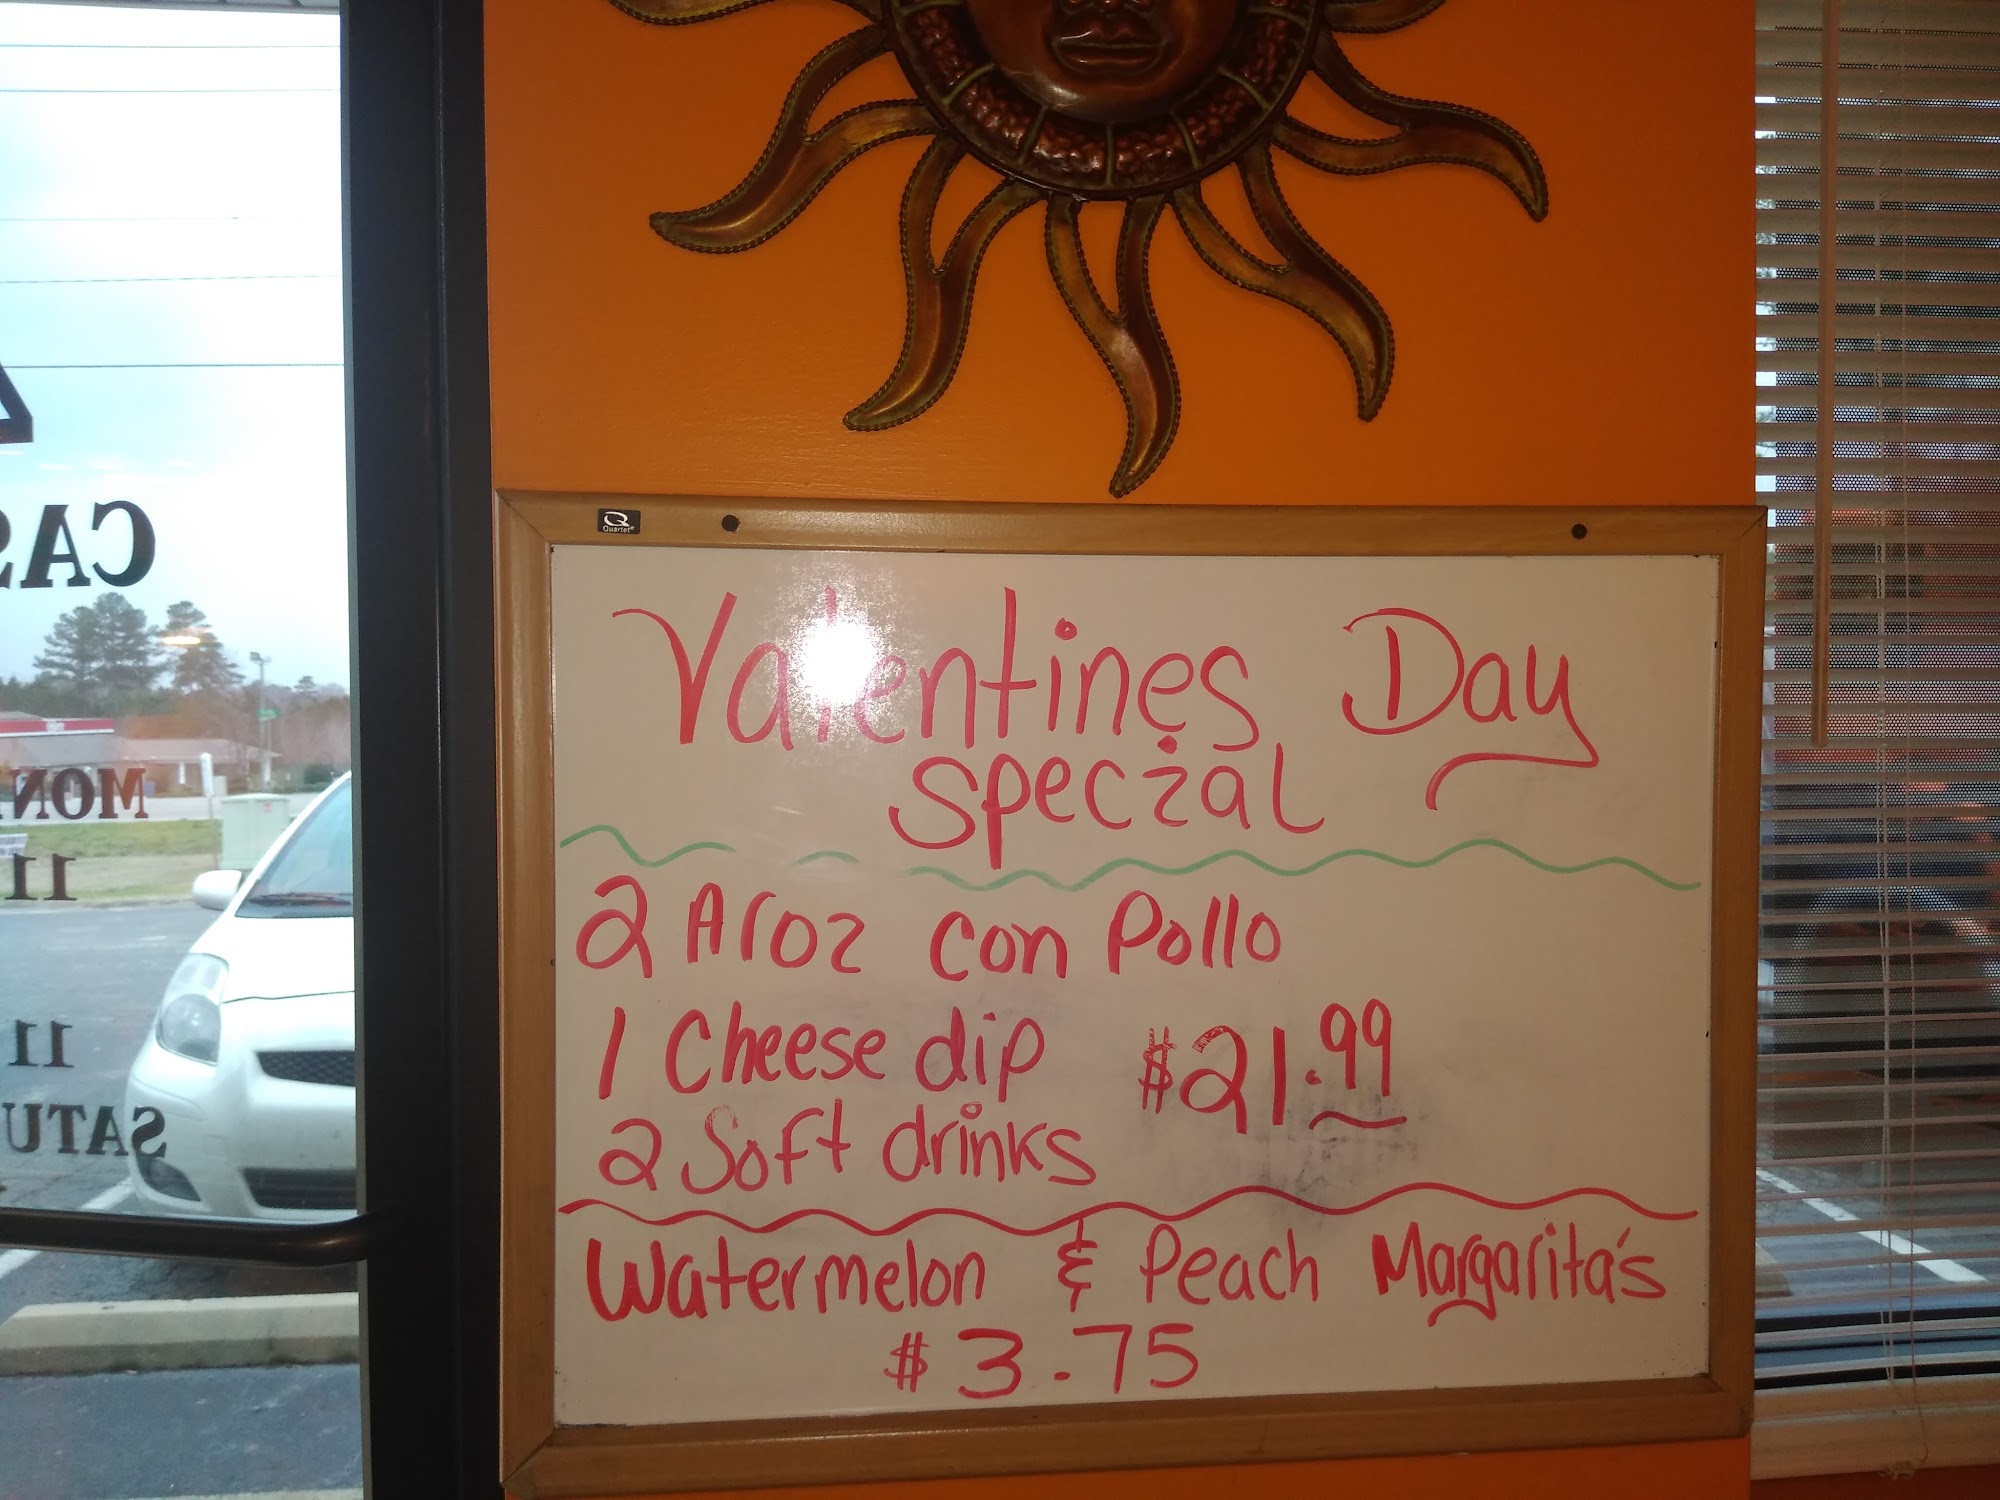 Quartet
Valentines Day
special
2 Aroz con Pollo
1 Cheese dip
$21.99
2 Soft drinks
Watermelon & Peach Margarita's
$3.75
CAS
MON
11
11
SATU